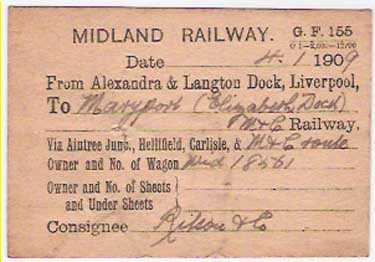 MIDLAND RAILWAY. G. F. 155
Date 4.1 1909
From Alexandra & Langton Dock, Liverpool,
To Maryport (Elizabeth Dock)
M&C Railway.
Via Aintree Junc., Hellifield, Carlisle, & M&C route
Owner and No. of Wagon Mid 18561
Owner and No. of Sheets
and Under Sheets
Consignee Ritson & Co